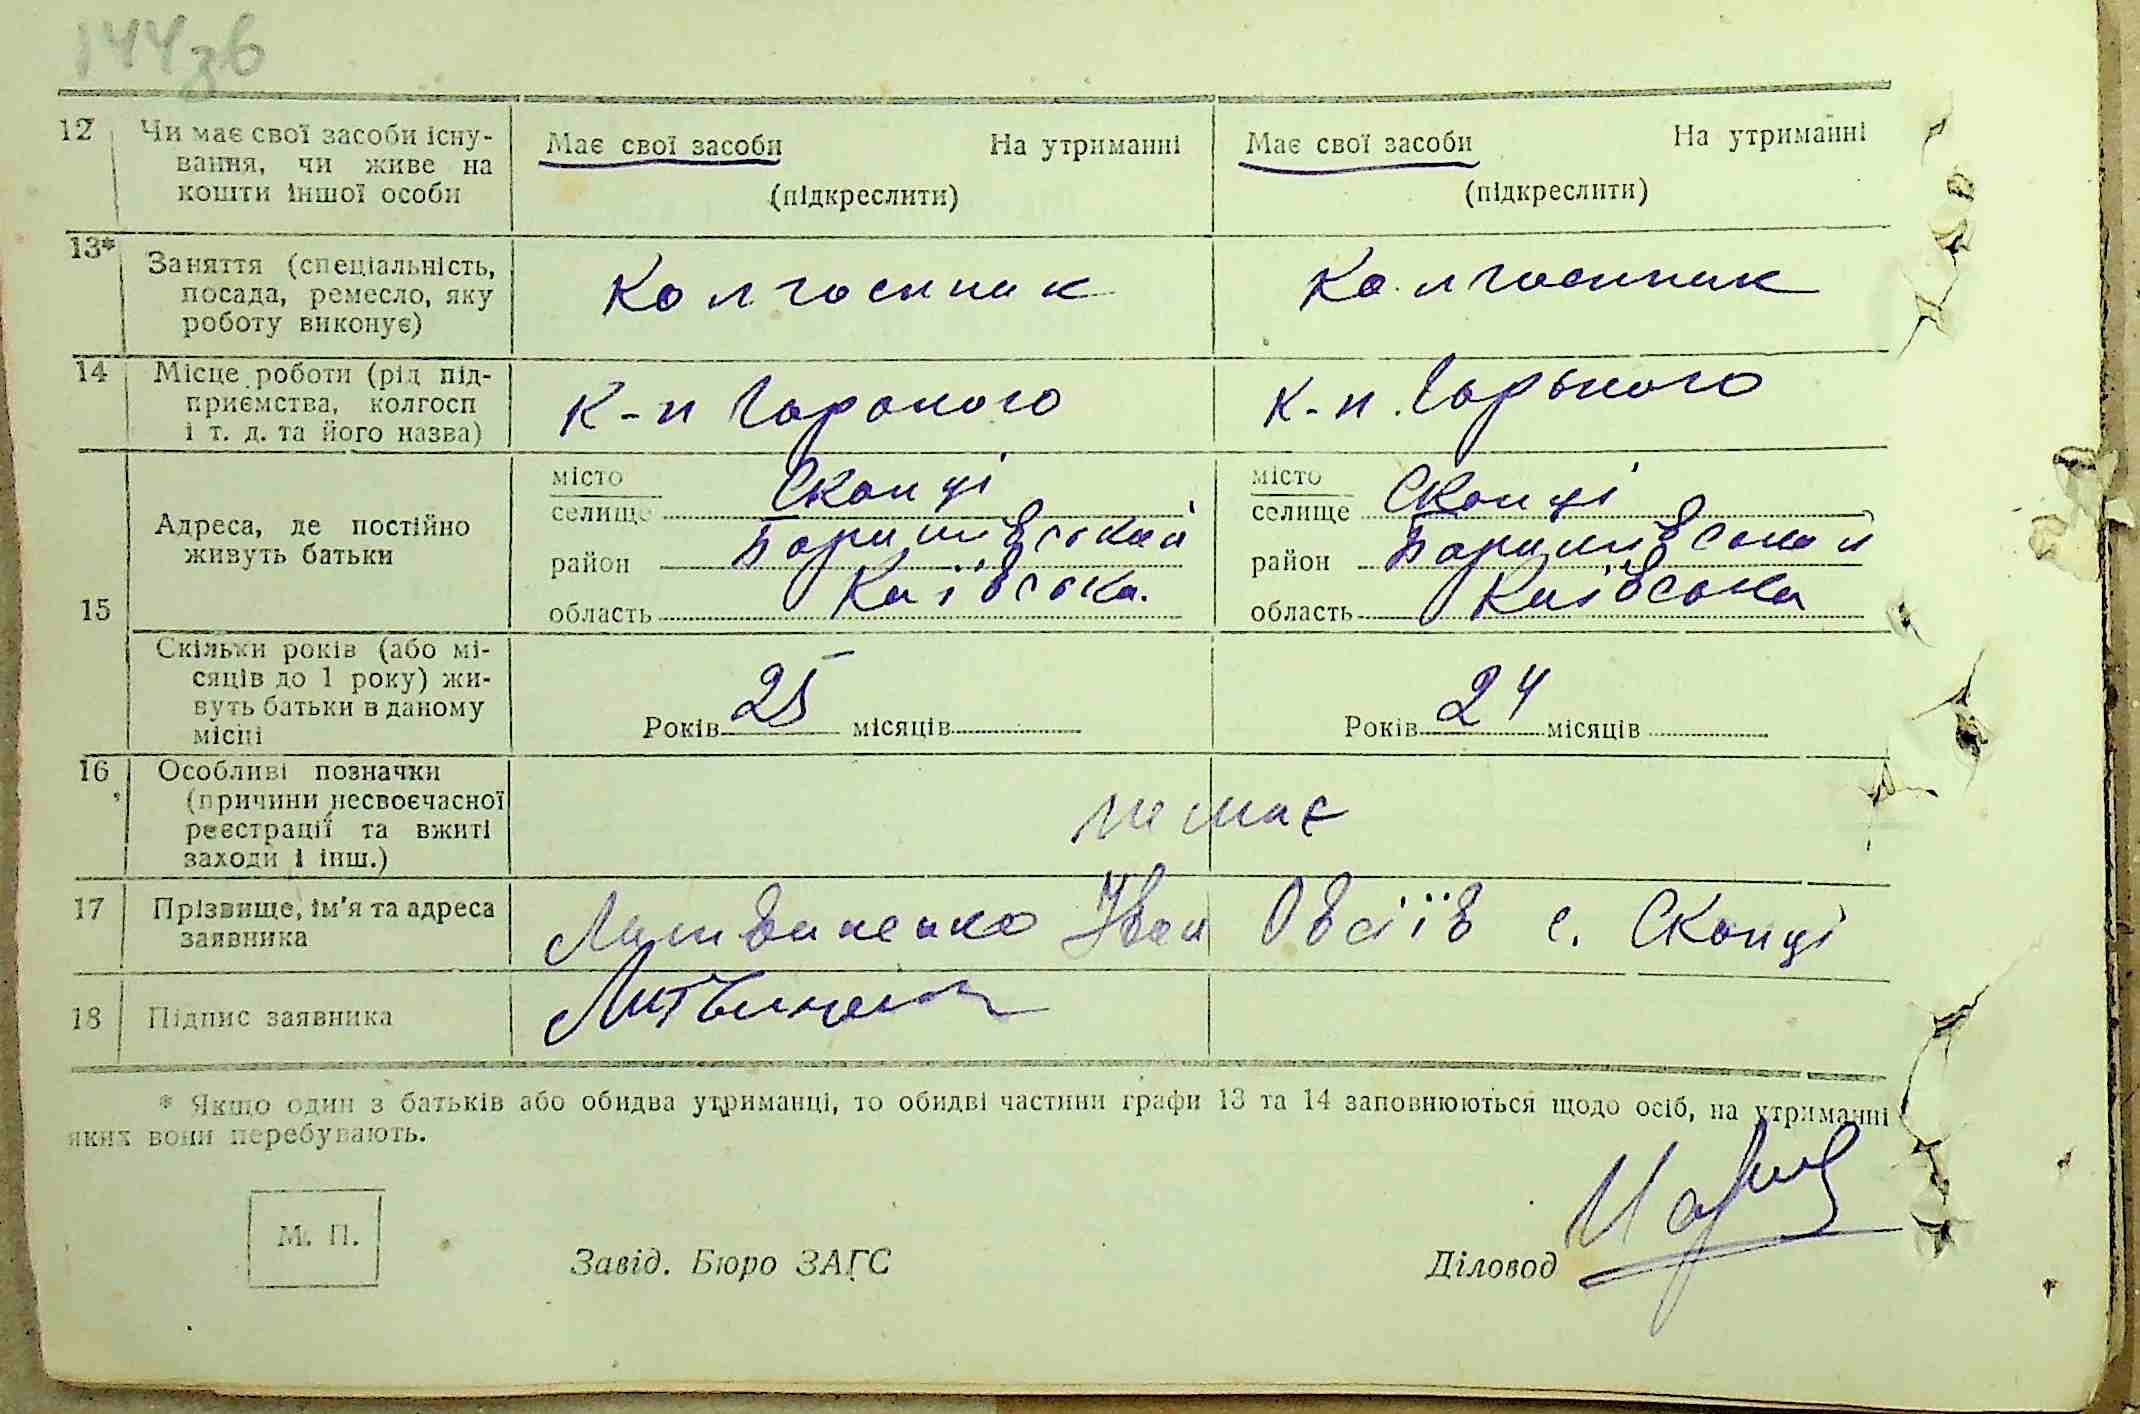 144зв
12 Чи має свої засоби існу-
вання, чи живе на
кошти іншої особи
Має свої засоби На утриманні
(підкреслити)
Має свої засоби На утриманні
(підкреслити)
13* Заняття (спеціальність,
посада, ремесло, яку
роботу виконує)
Колгоспник
Колгоспник
14 Місце роботи (рід під-
приємства, колгосп
і т. д. та його назва)
к-п Горького
к-п. Горького
15
Адреса, де постійно
живуть батьки
місто
селище Скопці
район Баришівський
область Київська.
місто
селище Скопці
район Баришівський
область Київська
Скільки років (або мі-
сяців до 1 року) жи-
вуть батьки в даному
місці
Років 25 місяців
Років 24 місяців
16 Особливі позначки
(причини несвоєчасної
реєстрації та вжиті
заходи і інш.)
немає
17 Прізвище, ім'я та адреса
заявника
Литвиненко Іван Овсіїв с. Скопці
18 Підпис заявника
* Якщо один з батьків або обидва утриманці, то обидві частини графи 13 та 14 заповнюються щодо осіб, на утриманні
яких вони перебувають.
М. П.
Завід. Бюро ЗАГС
Діловод